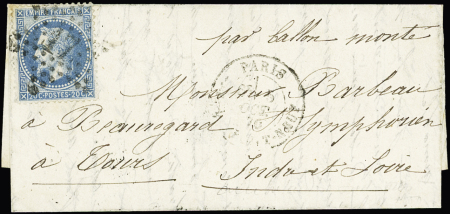 EMPIRE FRANÇAIS
20 C POSTES 20 C
par ballon monté
PARIS
OCT
Monsieur Barbeau
à Beauregard St Symphorien
à Tours Indre et Loire